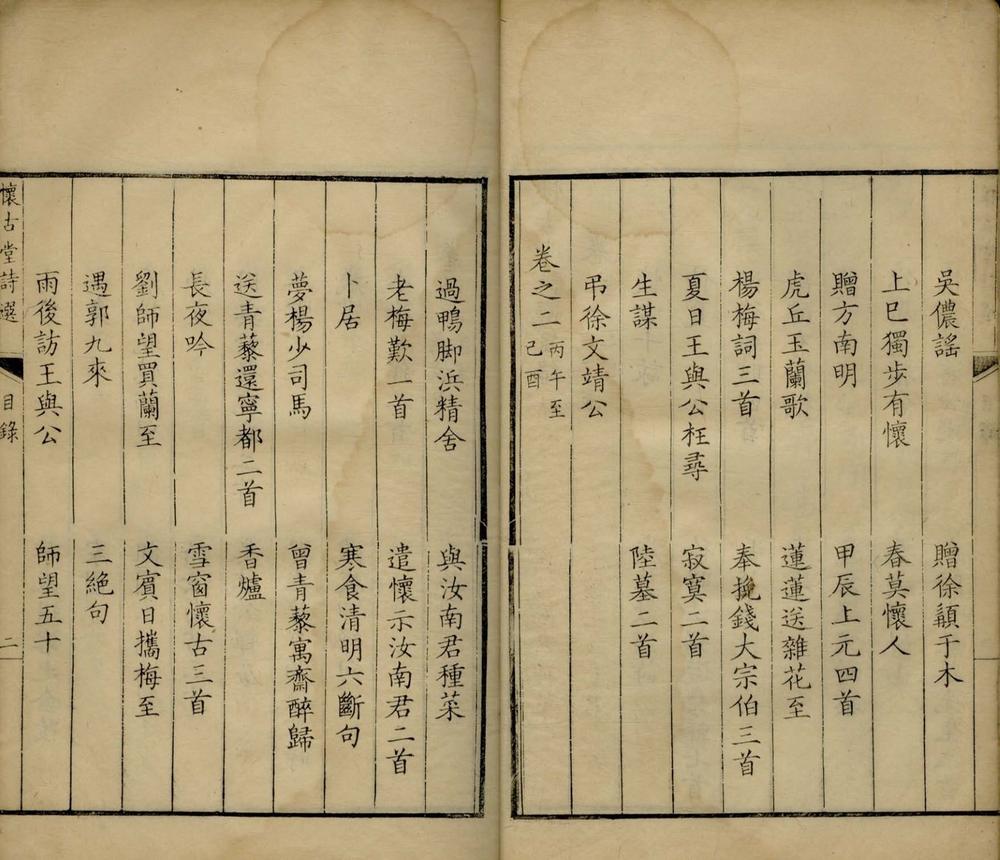 吳儂謠 贈徐穎于木
上巳獨步有懷 春莫懷人
贈方南明 甲辰上元四首
虎丘玉蘭歌 蓮蓮送雜花至
楊梅詞三首 奉挽錢大宗伯三首
夏日王與公枉尋 寂寞二首
生謀 陸墓二首
弔徐文靖公
卷之二 丙午至己酉
過鴨脚浜精舍 與汝南君種菜
老梅歎一首 遣懷示汝南君二首
卜居 寒食清明六斷句
夢楊少司馬 曾青藜寓齋醉歸
送青藜還寧都二首 香爐
長夜吟 雪窗懷古三首
劉師望買蘭至 文賓日攜梅至
遇郭九來 三絕句
雨後訪王與公 師望五十
懷古堂詩選 目錄 二